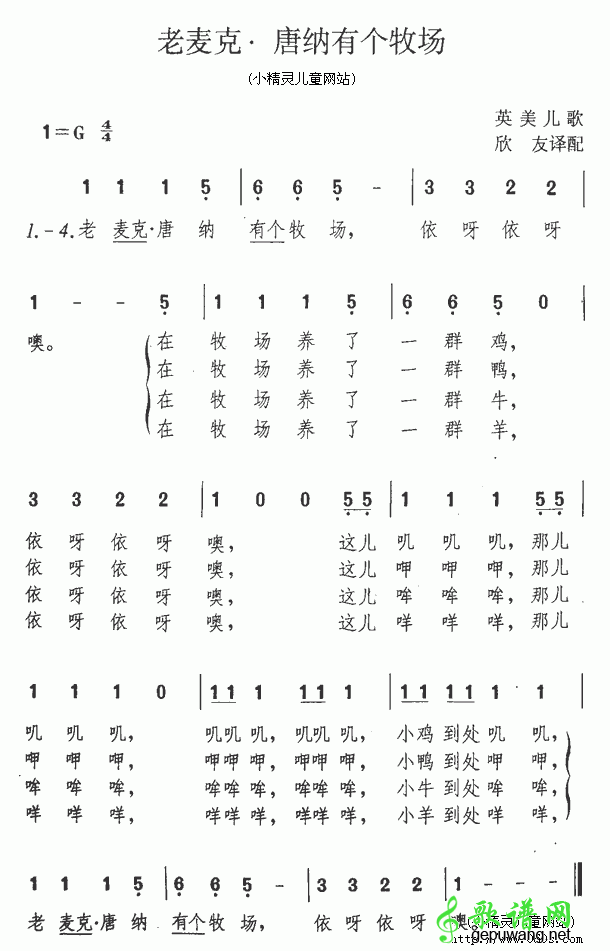 老麦克·唐纳有个牧场
(小精灵儿童网站)
英美儿歌
1=G 4/4
欣 友译配
1 1 1 5 | 6 6 5 - | 3 3 2 2 |
1.-4.老 麦克·唐 纳 有个牧 场, 依 呀 依 呀
1 - - 5 | 1 1 1 5 | 6 6 5 0 |
噢。 在 牧 场 养 了 一 群 鸡,
在 牧 场 养 了 一 群 鸭,
在 牧 场 养 了 一 群 牛,
在 牧 场 养 了 一 群 羊,
3 3 2 2 | 1 0 0 5 5 | 1 1 1 5 5 |
依 呀 依 呀 噢, 这儿 叽 叽 叽, 那儿
依 呀 依 呀 噢, 这儿 呷 呷 呷, 那儿
依 呀 依 呀 噢, 这儿 哞 哞 哞, 那儿
依 呀 依 呀 噢, 这儿 咩 咩 咩, 那儿
1 1 1 0 | 1 1 1 1 1 1 | 1 1 1 1 1 1 |
叽 叽 叽, 叽叽 叽, 叽叽 叽, 小鸡 到处 叽 叽,
呷 呷 呷, 呷呷 呷, 呷呷 呷, 小鸭 到处 呷 呷,
哞 哞 哞, 哞哞 哞, 哞哞 哞, 小牛 到处 哞 哞,
咩 咩 咩, 咩咩 咩, 咩咩 咩, 小羊 到处 咩 咩,
1 1 1 5 | 6 6 5 - | 3 3 2 2 | 1 - - -
老 麦克·唐 纳 有个牧 场, 依 呀 依 呀 噢。
歌谱网
gepuwang.net